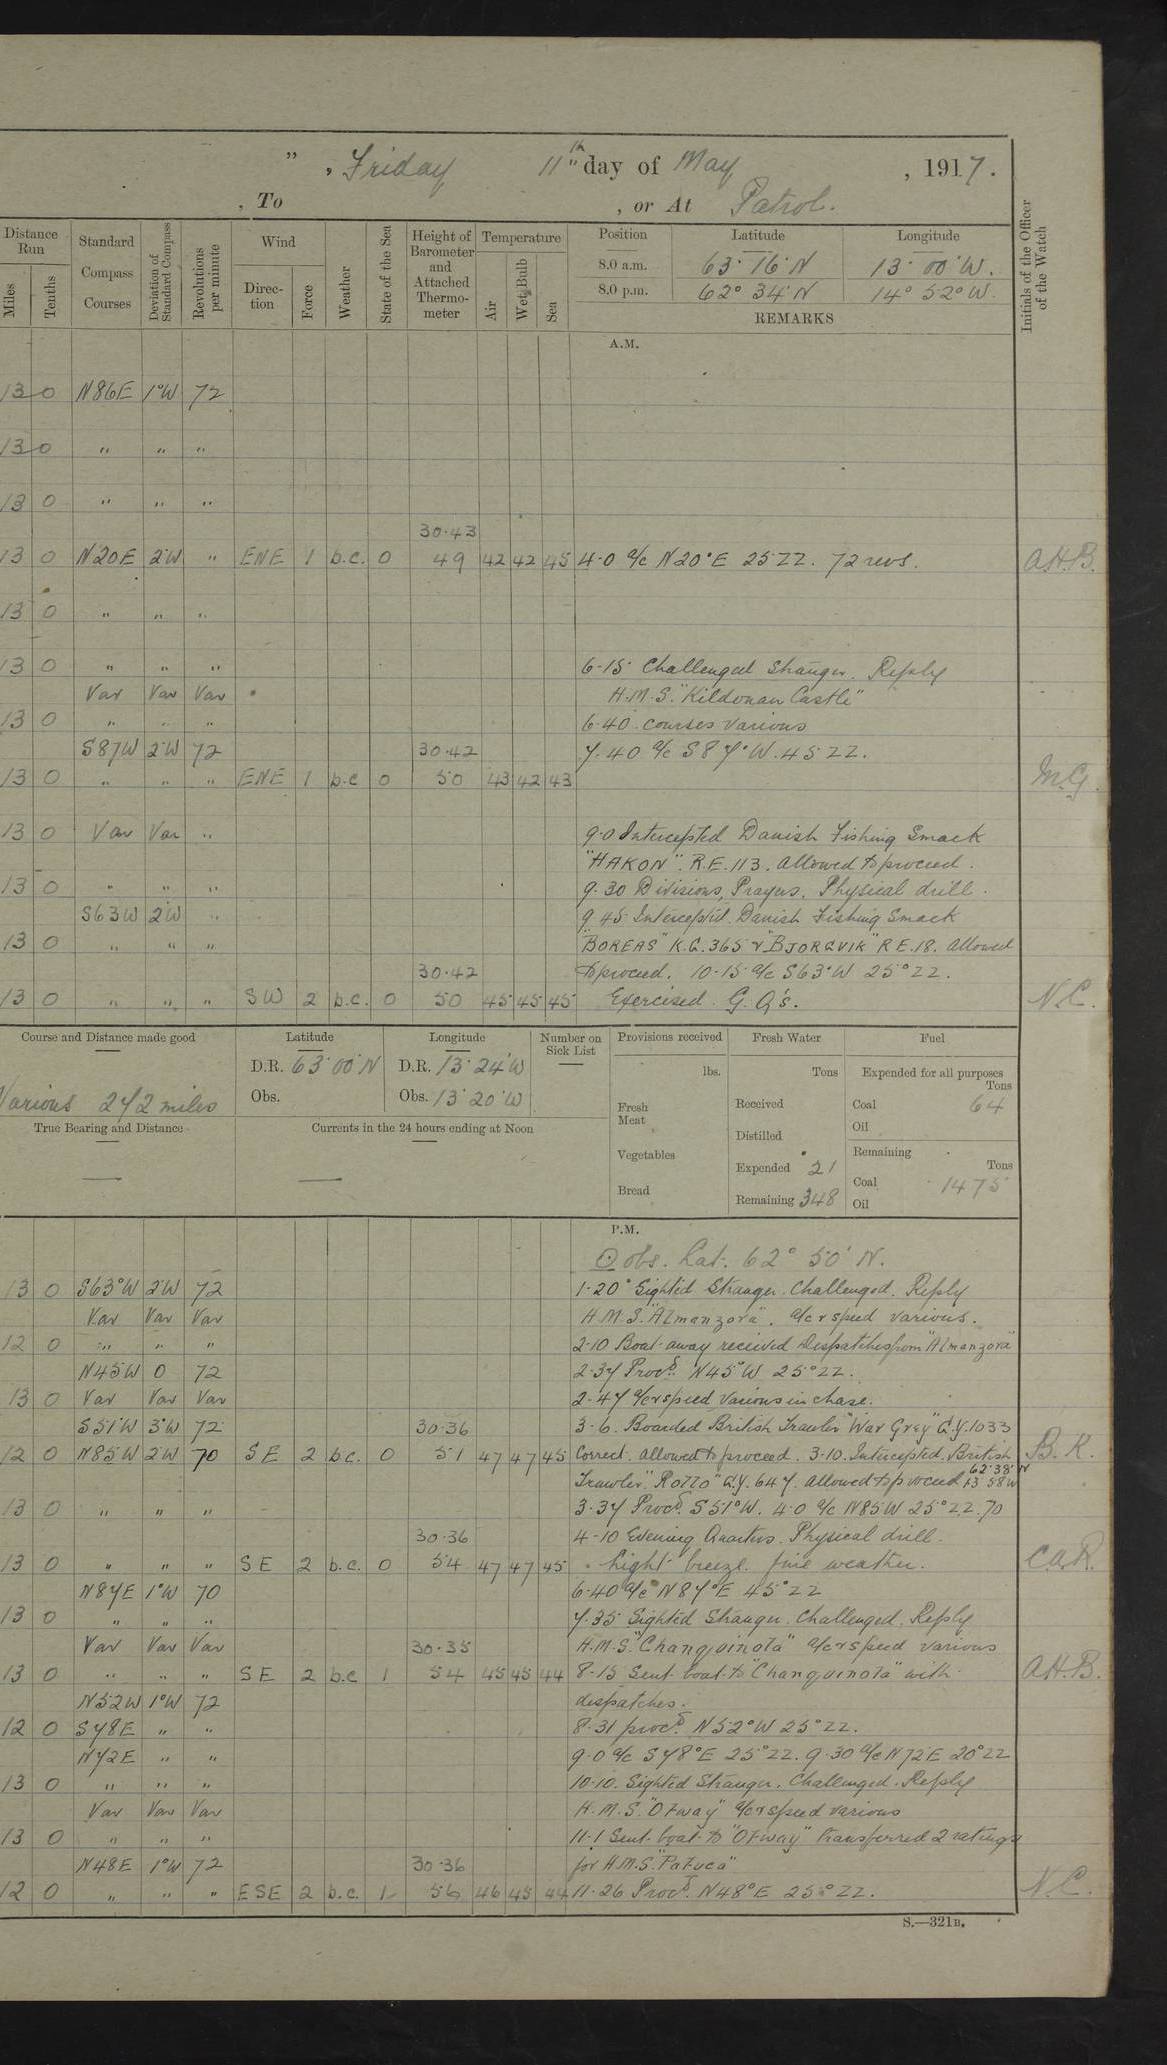 " , Friday 11th day of May , 1917.
, To , or At Patrol.
Distance Run Miles Tenths Standard Compass Courses Deviation of Standard Compass Revolutions per minute Wind Direction Force Weather State of the Sea Height of Barometer and Attached Thermometer Temperature Air Wet Bulb Sea Position Latitude Longitude Initials of the Officer of the Watch
8.0 a.m. 63° 16' N 13° 00' W.
8.0 p.m. 62° 34' N 14° 52° W.
REMARKS
A.M.
13 0 N86E 1°W 72
13 0 " " "
13 0 " " "
30.43
13 0 N20E 2°W " ENE 1 b.c. 0 49 42 42 45 4-0 a/c N20°E 25°ZZ. 72 revs. A.H.B.
13 0 " " "
13 0 " " " 6-15 Challenged Stranger. Reply
Var Var Var H.M.S. "Kildonan Castle"
13 0 " " " 6-40 courses various
S87W 2°W 72 30.42 7.40 a/c S87°W. 45°ZZ.
13 0 " " " ENE 1 b.c 0 50 43 42 43 M.G.
13 0 Var Var " 9-0 Intercepted Danish Fishing Smack
"HAKON". R.E. 113. Allowed to proceed.
13 0 " " " 9.30 Divisions, Prayers, Physical drill.
S63W 2°W " 9.45 Intercepted Danish Fishing Smack
13 0 " " " "BOREAS" K.G. 365 & "BJORGVIK" R E. 18. Allowed
30.42 to proceed. 10-15 a/c S63°W 25°ZZ.
13 0 " " " SW 2 b.c. 0 50 45 45 45 Exercised G. Q's. N.C.
Course and Distance made good Latitude Longitude Number on Sick List Provisions received Fresh Water Fuel
D.R. 63° 00' N D.R. 13° 24' W lbs. Tons Expended for all purposes Tons
Various 242 miles Obs. Obs. 13° 20' W Fresh Meat Received Coal 64
Oil
True Bearing and Distance Currents in the 24 hours ending at Noon Distilled
Vegetables Expended 21 Remaining Tons
Bread Remaining 348 Coal 1475
Oil
P.M.
Obs. Lat. 62° 50' N.
13 0 S63°W 2°W 72 1-20 Sighted Stranger. Challenged. Reply
Var Var Var H.M.S. "Almanzora". a/c & speed various.
12 0 " " " 2-10 Boat away received Despatches from "Almanzora"
N45W 0 72 2-37 Procd. N45°W 25°ZZ.
13 0 Var Var Var 2-47 a/c & speed various in chase.
S51°W 3°W 72 30.36 3-6. Boarded British Trawler "War Grey" G.Y. 1033
12 0 N85W 2°W 70 SE 2 b.c. 0 51 47 47 45 Correct. allowed to proceed. 3-10. Intercepted British B.K.
Trawler "Rotto" G.Y. 647. Allowed to proceed 62°38' N 13°58W
13 0 " " " 3-37 Procd S51°W. 4-0 a/c N85W 25°ZZ. 70
30.36 4-10 Evening Quarters. Physical drill.
13 0 " " " SE 2 b.c. 0 54 47 47 45 Light breeze. fine weather. C.A.R.
N87E 1°W 70 6-40 a/c N87°E 45°ZZ
13 0 " " " 7.35 Sighted Stranger. Challenged. Reply
Var Var Var 30.35 H.M.S. "Changuinola" a/c & speed various
13 0 " " " SE 2 b.c 1 54 45 45 44 8-15 Sent boat to "Changuinola" with A.H.B.
N52W 1°W 72 dispatches.
12 0 S78E " " 8-31 procd. N52°W 25°ZZ.
N72E " " 9-0 a/c S78°E 25°ZZ. 9.30 a/c N72E 20°ZZ
13 0 " " " 10-10. Sighted Stranger. Challenged. Reply
Var Var Var H.M.S. "Otway" a/c & speed various
13 0 " " " 11-1 Sent boat to "Otway" transferred 2 ratings
N48E 1°W 72 30.36 for H.M.S. "Patuca"
12 0 " " " ESE 2 b.c. 1 56 46 45 44 11-26 Procd. N48°E 25°ZZ. N.C.
S.—321B.